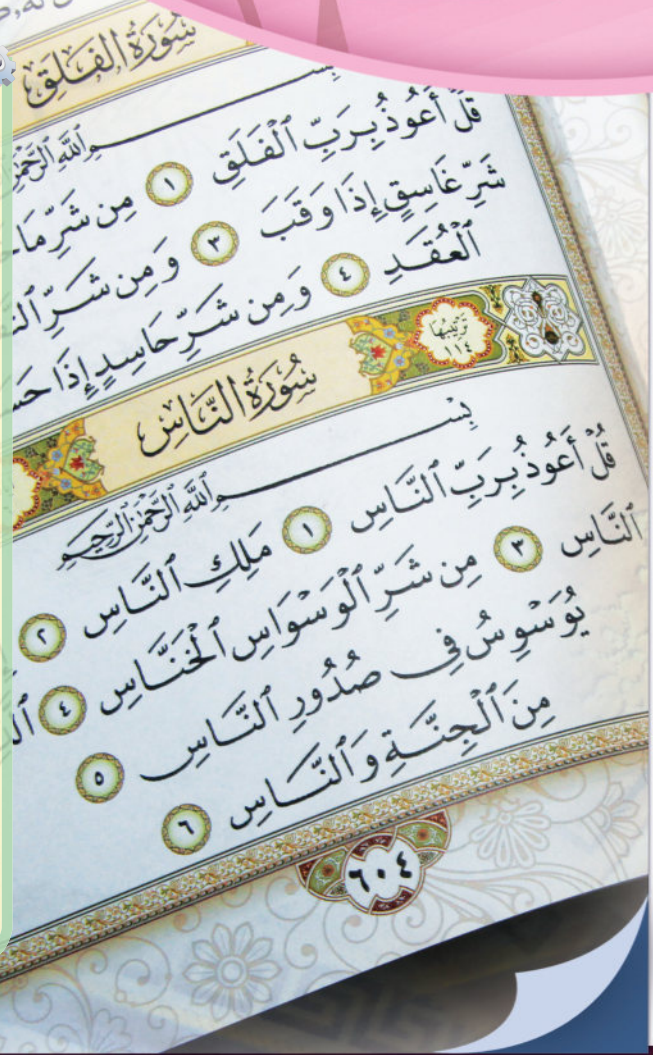 سُورَةُ الفَلَقِ
بِسْمِ اللَّهِ الرَّحْمَٰنِ
قُلْ أَعُوذُ بِرَبِّ ٱلْفَلَقِ ١ مِن شَرِّ مَا
شَرِّ غَاسِقٍ إِذَا وَقَبَ ٣ وَمِن شَرِّ
ٱلْعُقَدِ ٤ وَمِن شَرِّ حَاسِدٍ إِذَا
سُورَةُ النَّاسِ
تَرْتِيبُهَا
١١٤
بِسْمِ اللَّهِ الرَّحْمَٰنِ الرَّحِيمِ
قُلْ أَعُوذُ بِرَبِّ ٱلنَّاسِ ١ مَلِكِ ٱلنَّاسِ ٢
ٱلنَّاسِ ٣ مِن شَرِّ ٱلْوَسْوَاسِ ٱلْخَنَّاسِ ٤
يُوَسْوِسُ فِي صُدُورِ ٱلنَّاسِ ٥
مِنَ ٱلْجِنَّةِ وَٱلنَّاسِ ٦
٦٠٤